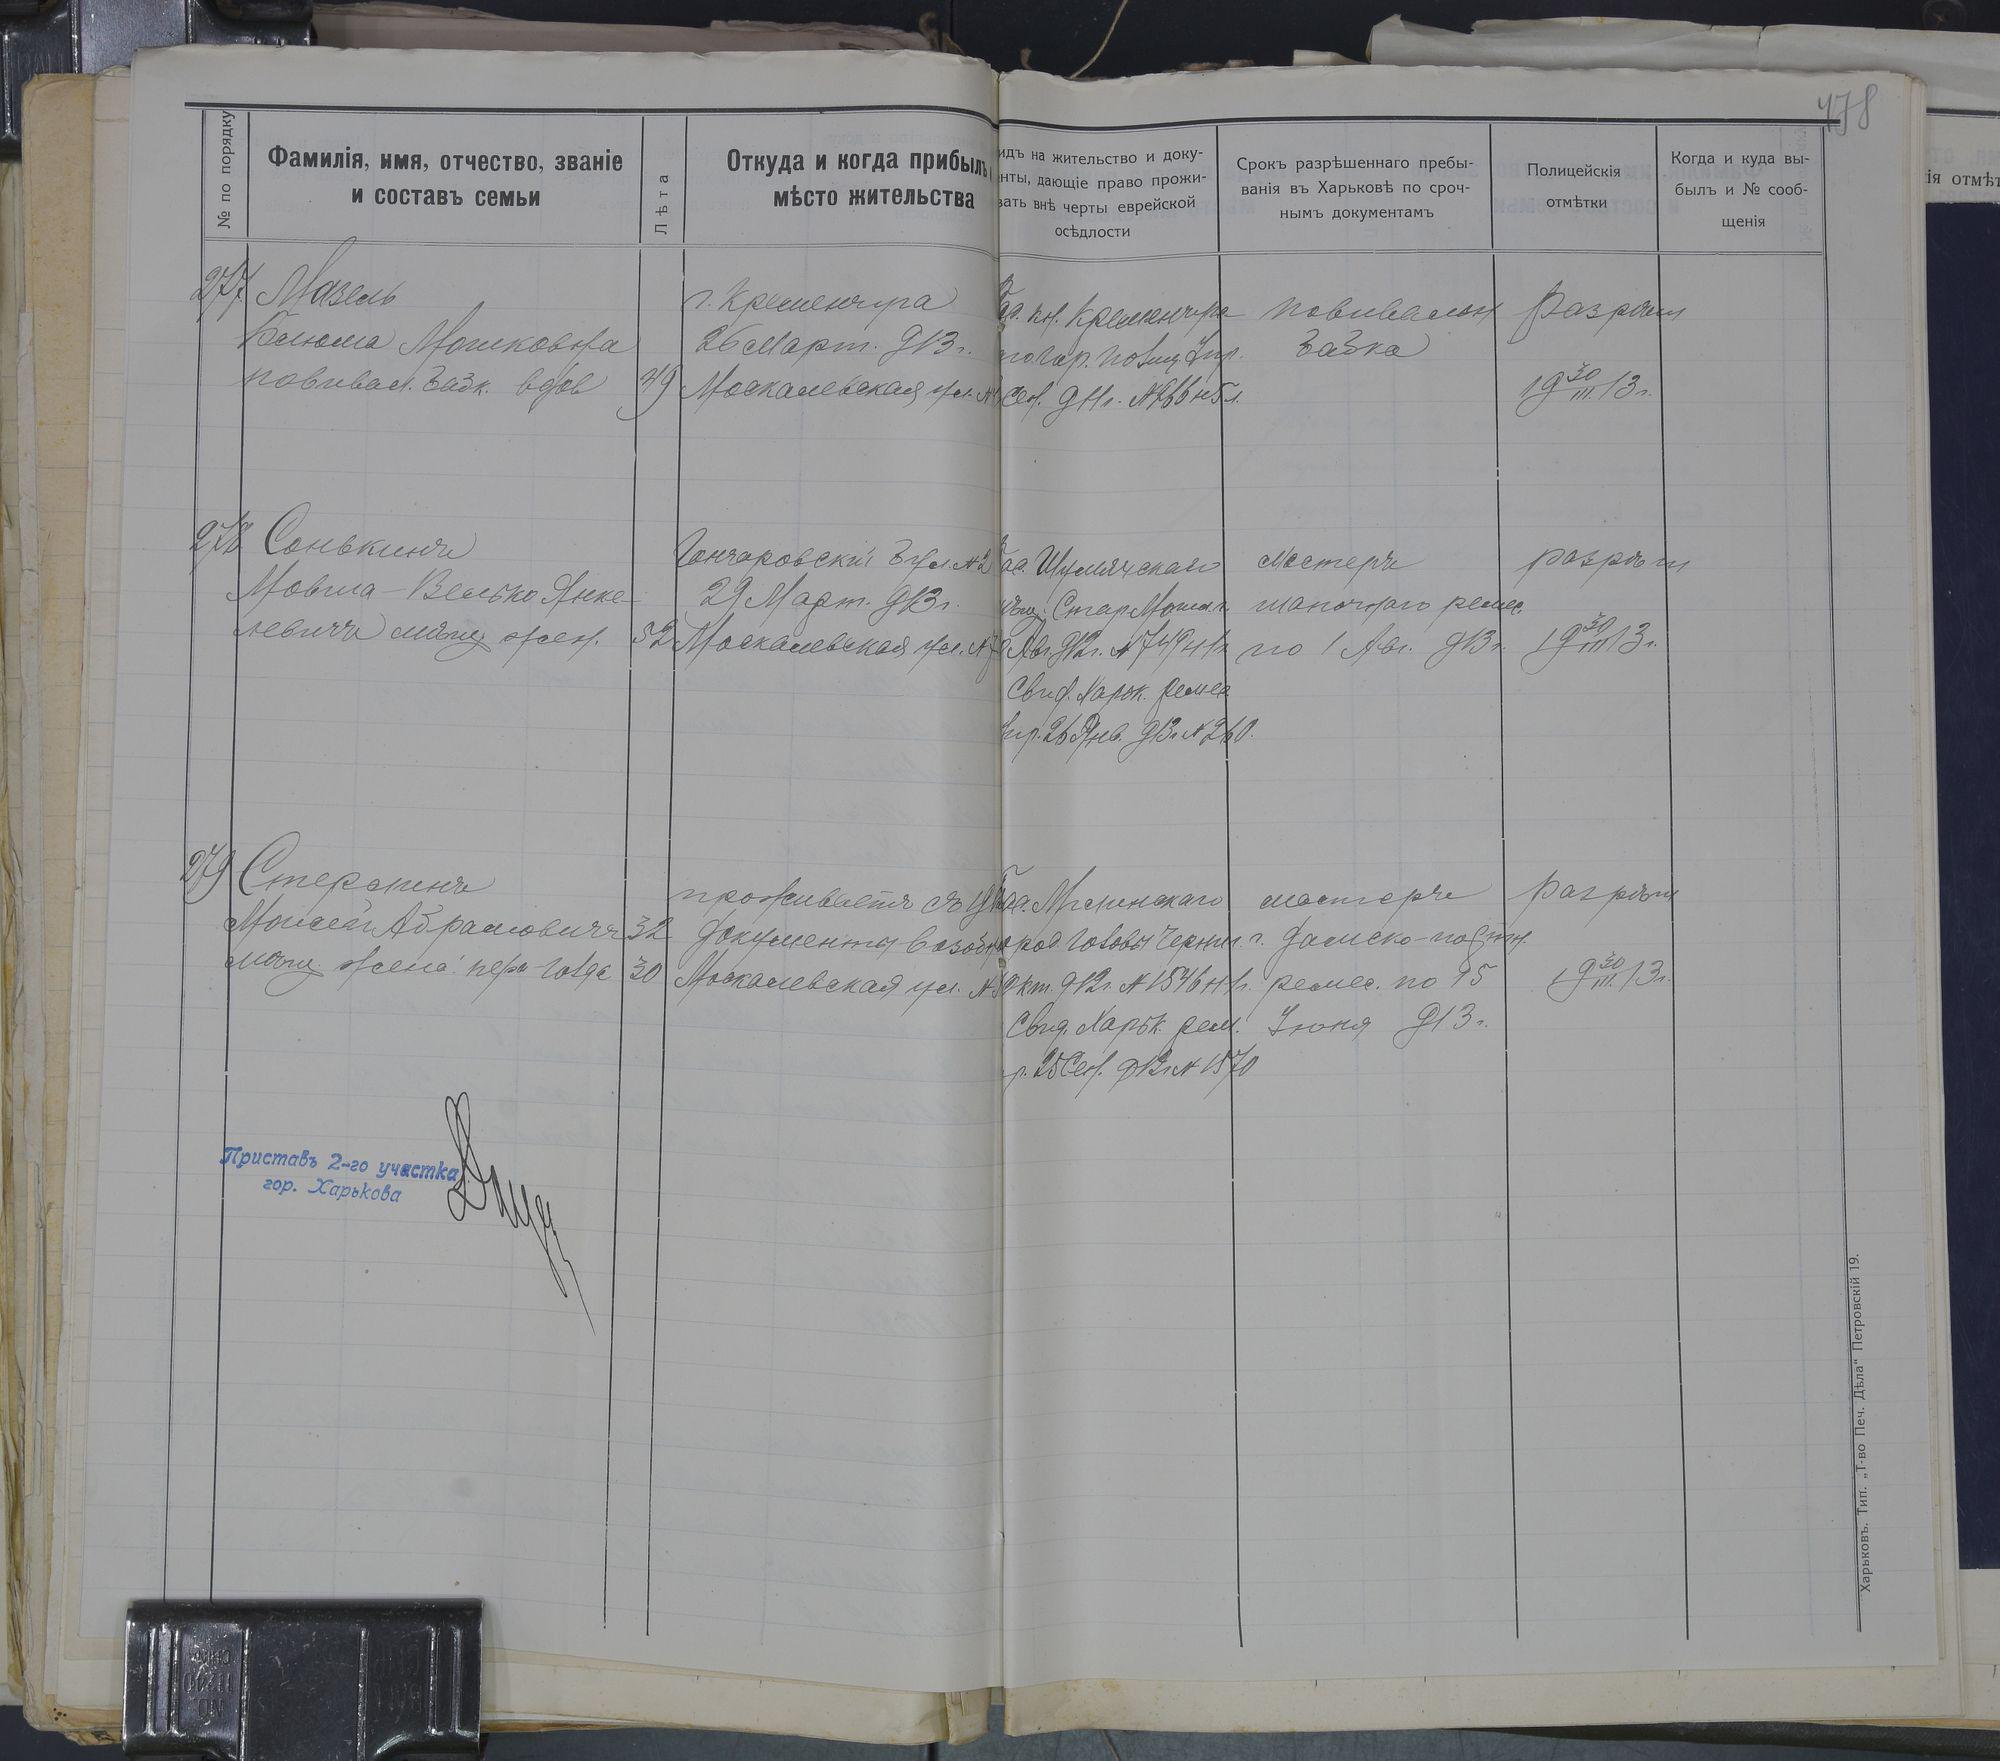 178
№ по порядку
Фамилія, имя, отчество, званіе
и составъ семьи
Лѣта
Откуда и когда прибылъ
мѣсто жительства
идъ на жительство и доку-
енты, дающіе право прожи-
вать внѣ черты еврейской
осѣдлости
Срокъ разрѣшеннаго пребы-
ванія въ Харьковѣ по сроч-
нымъ документамъ
Полицейскія
отмѣтки
Когда и куда вы-
былъ и № сооб-
щенія
ія отмѣт
277 Мазель
Блюма Мошковна
повивал. бабк. вдов 49
г. Кременчуга
26 Март. 913 г.
Москалевская ул. №
пас. кн. Кременчуг
гор. полиц. Упр.
Сен. 911 г. № 266 н 5 л.
повивальн
бабка
Разрѣш
19 30/III 13 г.
278 Сонькинъ
Мовша-Велько Янке-
левичъ мѣщ. жен. 52
Гончаровскій б ул. № 2
29 Март. 913 г.
Москалевская ул. №
пас. Шумячскаго
мѣщ. Стар Могил. г.
Авг. 912 г. № 749 н 1 г.
Свид. Харьк. ремес
Упр. 26 Янв. 913 г. № 260.
мастеръ
шапочнаго ремес.
по 1 Авг. 913 г.
разрѣш
19 30/III 13 г.
279 Стерлинъ
Моисей Абрамович 32
мѣщ. жена: перл Голда 30
проживаетъ съ
документы возобн
Москалевская ул. №
пас. Мглинскаго
гор Головы Черниг. г.
Окт. 912 г. № 1546 н 1 г.
Свид. Харьк. рем.
р. 25 Сен. 912 г. № 1570
мастеръ
дамско-портн.
ремес. по 15
Іюня 913 г.
Разрѣш
19 30/III 13 г.
Приставъ 2-го участка
гор. Харькова
Харьковъ. Тип. „Т-во Печ. Дѣла“ Петровскій 19.